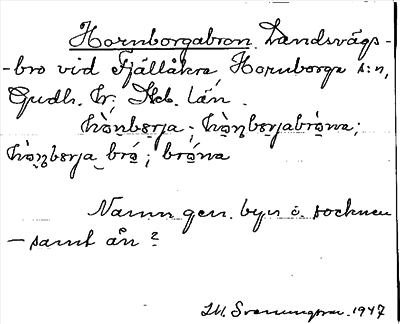 Hornborgabron. Landsvägs-
-bro vid Fjällåkra, Hornborga s:n,
Gudh. hr; Skb. län.
hò̤ṇbɛrja ; hò̤ṇbɛrjabrò̤na;
hò̤ṇbɛrja bró̤ ; bró̤na
Namn gen. byn o. socknen
– samt ån ?
1947